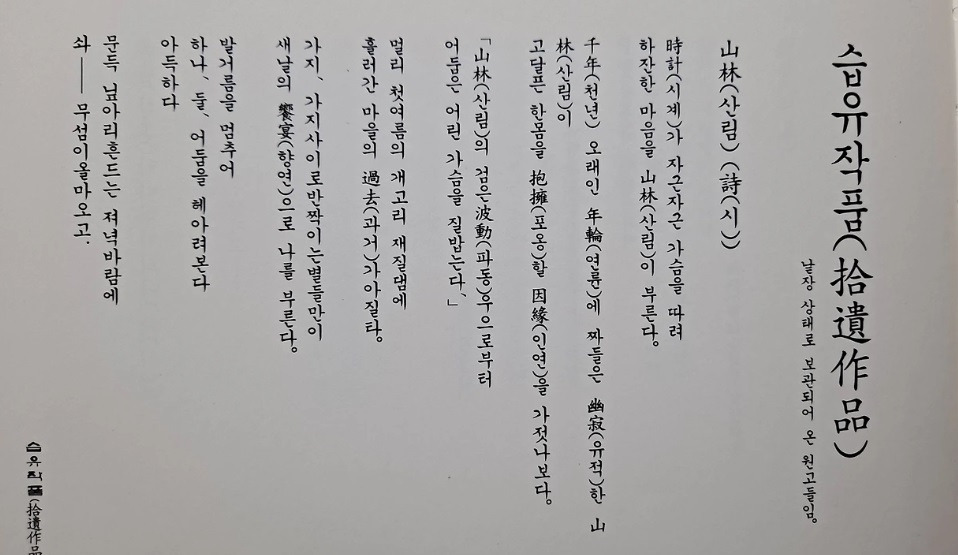 습유작품(拾遺作品)
낱장 상태로 보관되어 온 원고들임。
山林(산림) (詩(시))
時計(시계)가 자근자근 가슴을 따려
하잔한 마음을 山林(산림)이 부른다。
千年(천년) 오래인 年輪(연륜)에 짜들은 幽寂(유적)한 山
林(산림)이
고달픈 한몸을 抱擁(포옹)할 因緣(인연)을 가젓나보다。
「山林(산림)의 검은波動(파동)우으로부터
어둠은 어린 가슴을 질밥는다、」
멀리 첫여름의 개고리 재질댐에
흘러간 마을의 過去(과거)가아질타。
가지、가지사이로반짝이는별들만이
새날의 饗宴(향연)으로 나를 부른다。
발거름을 멈추어
하나、둘、어둠을 헤아려본다
아득하다
문득 닢아리흔드는 져녁바람에
솨── 무섬이올마오고.
습유작품(拾遺作品